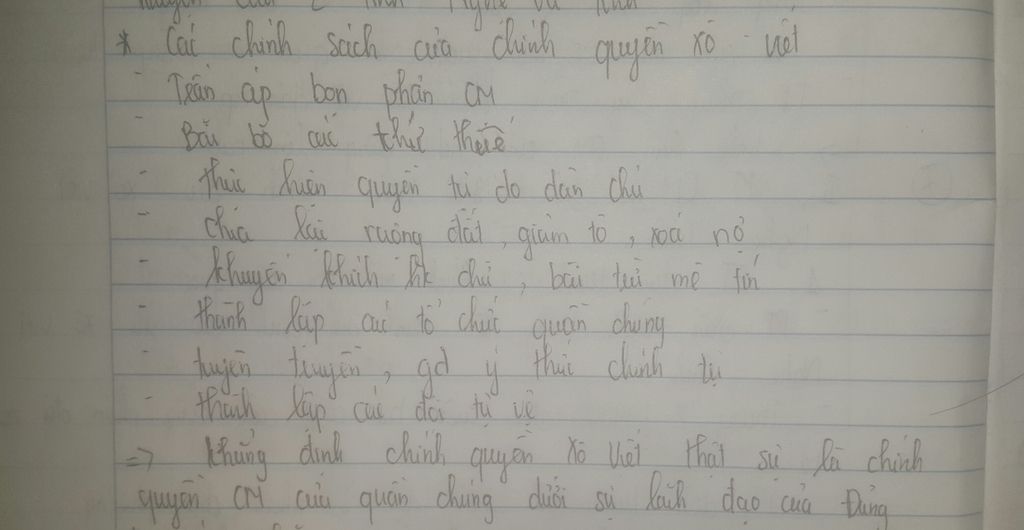 * Các chính sách của chính quyền Xô - viết
- Trấn áp bọn phản CM
- Bãi bỏ các thứ thuế
- thực hiện quyền tự do dân chủ
- chia lại ruộng đất, giảm tô, xoá nợ
- khuyến khích hk chữ, bài trừ mê tín
- thành lập các tổ chức quần chúng
- tuyên truyền, gd ý thức chính trị
- thành lập các đội tự vệ
=> khẳng định chính quyền Xô Viết thật sự là chính
quyền CM của quần chúng dưới sự lãnh đạo của Đảng